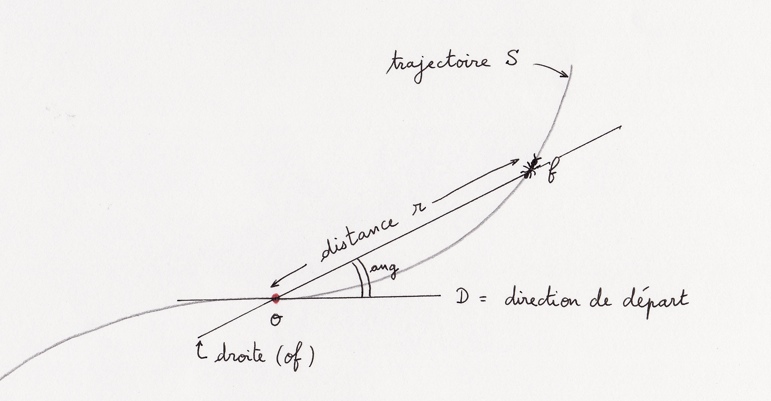 trajectoire S
f
distance r
ang
D = direction de départ
o
droite (of)